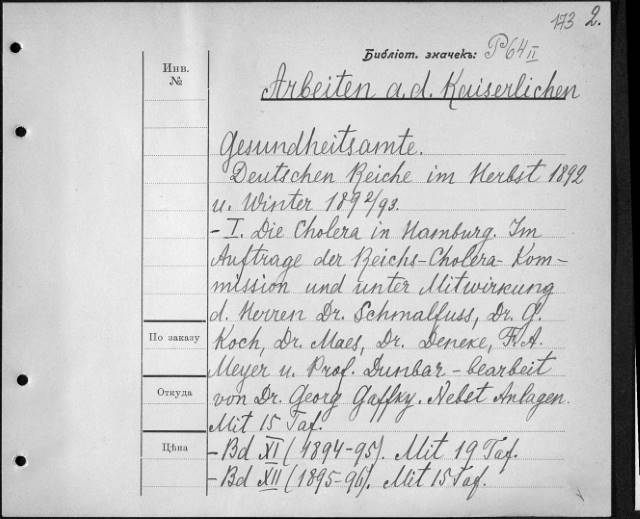 173 2.
Библіот. значекъ: P64 II
Инв.
№
Arbeiten a. d. Kaiserlichen
Gesundheitsamte.
Deutschen Reiche im Herbst 1892
u. Winter 1892/93.
- I. Die Cholera in Hamburg. Im
Auftrage der Reichs-Cholera-Kom-
mission und unter Mitwirkung
d. Herren Dr. Schmalfuss, Dr. G.
По заказу
Koch, Dr. Maes, Dr. Deneke, F. A.
Meyer u. Prof. Dunbar - bearbeit
Откуда
von Dr. Georg Gaffky. Nebst Anlagen.
Mit 15 Taf.
Цѣна
- Bd XI (1894-95). Mit 19 Taf.
- Bd XII (1895-96). Mit 15 Taf.